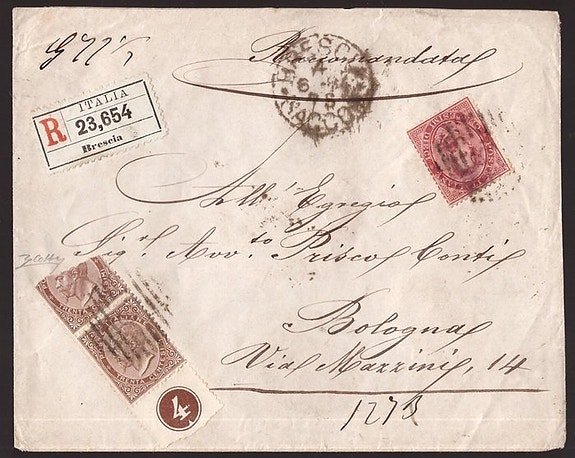 Raccomandata
ITALIA
R 23,654
Brescia
BRESCIA
6
88
RACCOM
All' Egregio
Sig.r Avv.to Prisco Conti
Bologna
Via Mazzini, 14
1273
TRENTA CENT
TRENTA CENT
4